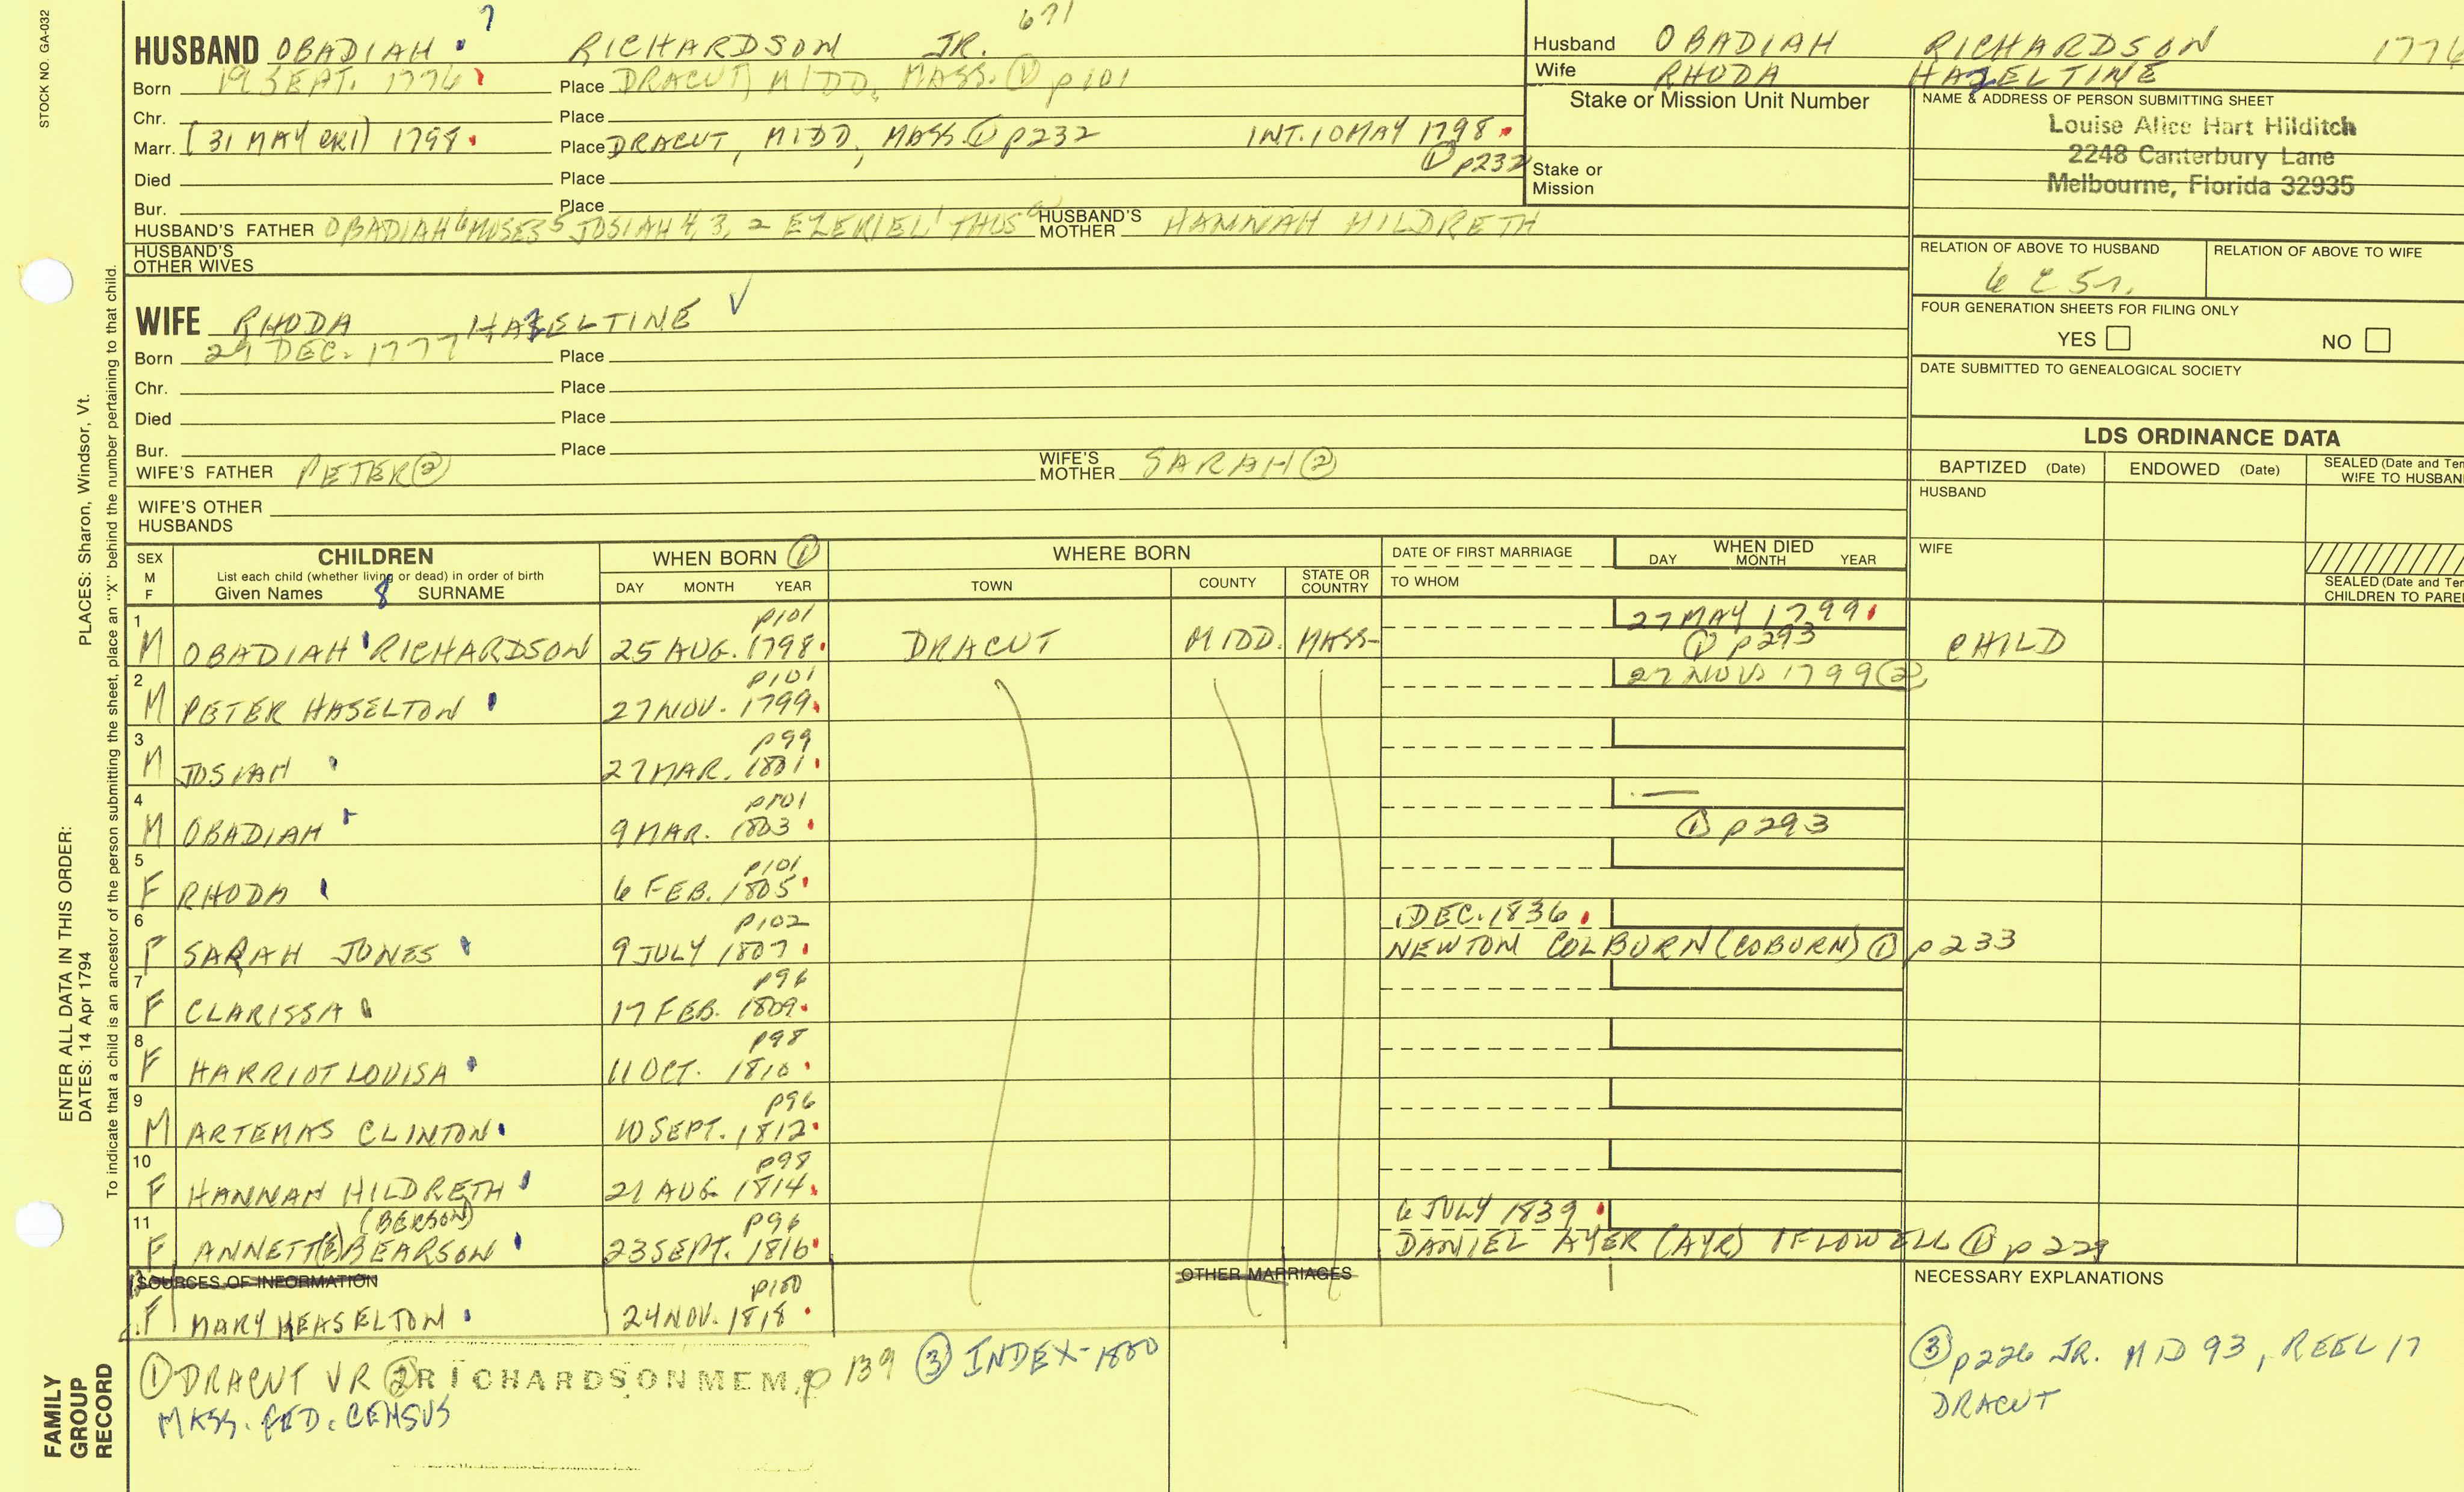 STOCK NO. GA-032
7
671
HUSBAND OBADIAH RICHARDSON JR.
Born 19 SEPT. 1776 Place DRACUT, MIDD, MASS. ① p101
Chr. Place
Marr. (31 MAY CR1) 1798 Place DRACUT, MIDD, MASS. ① p232 INT. 10 MAY 1798
① p232
Died Place
Bur. Place
HUSBAND'S FATHER OBADIAH 6 MOSES 5 JOSIAH 4, 3, 2 EZEKIEL 1 THUS HUSBAND'S MOTHER HANNAH HILDRETH
HUSBAND'S OTHER WIVES
Husband OBADIAH RICHARDSON 1776
Wife RHODA HAZELTINE
Stake or Mission Unit Number
Stake or Mission
NAME & ADDRESS OF PERSON SUBMITTING SHEET
Louise Alice Hart Hilditch
2248 Canterbury Lane
Melbourne, Florida 32935
RELATION OF ABOVE TO HUSBAND RELATION OF ABOVE TO WIFE
6 C 5r.
FOUR GENERATION SHEETS FOR FILING ONLY
YES NO
DATE SUBMITTED TO GENEALOGICAL SOCIETY
WIFE RHODA HAZELTINE ✓
Born 29 DEC. 1777 Place
Chr. Place
Died Place
Bur. Place
WIFE'S FATHER PETER ② WIFE'S MOTHER SARAH ②
WIFE'S OTHER HUSBANDS
LDS ORDINANCE DATA
BAPTIZED (Date) ENDOWED (Date) SEALED (Date and Tem
WIFE TO HUSBAN
HUSBAND
WIFE
SEALED (Date and Tem
CHILDREN TO PARE
SEX M F CHILDREN WHEN BORN ① WHERE BORN DATE OF FIRST MARRIAGE WHEN DIED
List each child (whether living or dead) in order of birth
Given Names 8 SURNAME DAY MONTH YEAR TOWN COUNTY STATE OR COUNTRY TO WHOM DAY MONTH YEAR
1 p101 27 MAY 1799
M OBADIAH RICHARDSON 25 AUG. 1798 DRACUT MIDD. MASS- ① p293 CHILD
2 p101 27 NOV 1799 ②
M PETER HASELTON 27 NOV. 1799
3 p99
M JOSIAH 27 MAR. 1801
4 p101 —
M OBADIAH 9 MAR. 1803 ① p293
5 p101
F RHODA 6 FEB. 1805
6 p102 1 DEC. 1836
F SARAH JONES 9 JULY 1807 NEWTON COLBURN (COBURN) ① p233
7 p96
F CLARISSA 17 FEB. 1809
8 p98
F HARRIOT LOUISA 11 OCT. 1810
9 p96
M ARTEMAS CLINTON 10 SEPT. 1812
10 p98
F HANNAH HILDRETH 21 AUG 1814
11 (BERSON) p96 6 JULY 1839
F ANNETT(E) BEARSON 23 SEPT. 1816 DANIEL AYER (AYR) OF LOWELL ① p229
SOURCES OF INFORMATION p100 OTHER MARRIAGES NECESSARY EXPLANATIONS
F MARY HEASELTON 24 NOV. 1818
① DRACUT VR ② RICHARDSON MEM. p 139 ③ INDEX-1800
MASS. FED. CENSUS
③ p226 JR. MID 93, REEL 17
DRACUT
ENTER ALL DATA IN THIS ORDER:
DATES: 14 Apr 1794
PLACES: Sharon, Windsor, Vt.
To indicate that a child is an ancestor of the person submitting the sheet, place an "X" behind the number pertaining to that child.
FAMILY
GROUP
RECORD